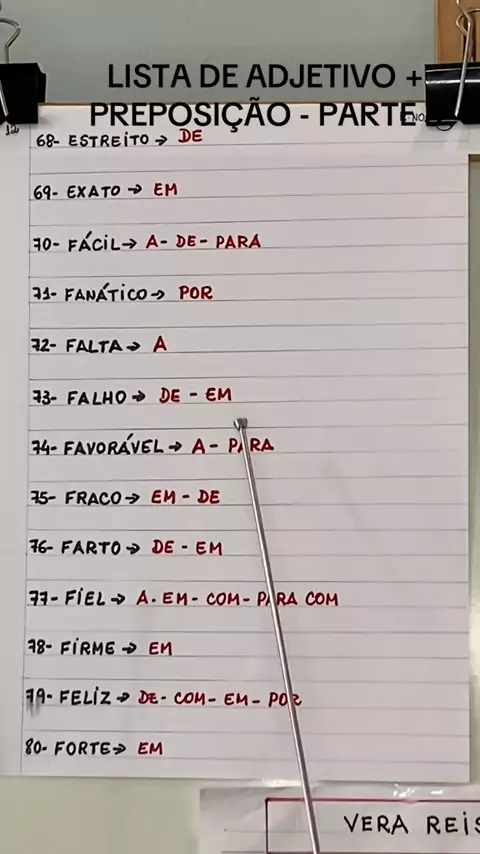 LISTA DE ADJETIVO +
PREPOSIÇÃO - PARTE
68- ESTREITO → DE
69- EXATO → EM
70- FÁCIL → A - DE - PARA
71- FANÁTICO → POR
72- FALTA → A
73- FALHO → DE - EM
74- FAVORÁVEL → A - PARA
75- FRACO → EM - DE
76- FARTO → DE - EM
77- FIEL → A - EM - COM - PARA COM
78- FIRME → EM
79- FELIZ → DE - COM - EM - POR
80- FORTE → EM
VERA REIS